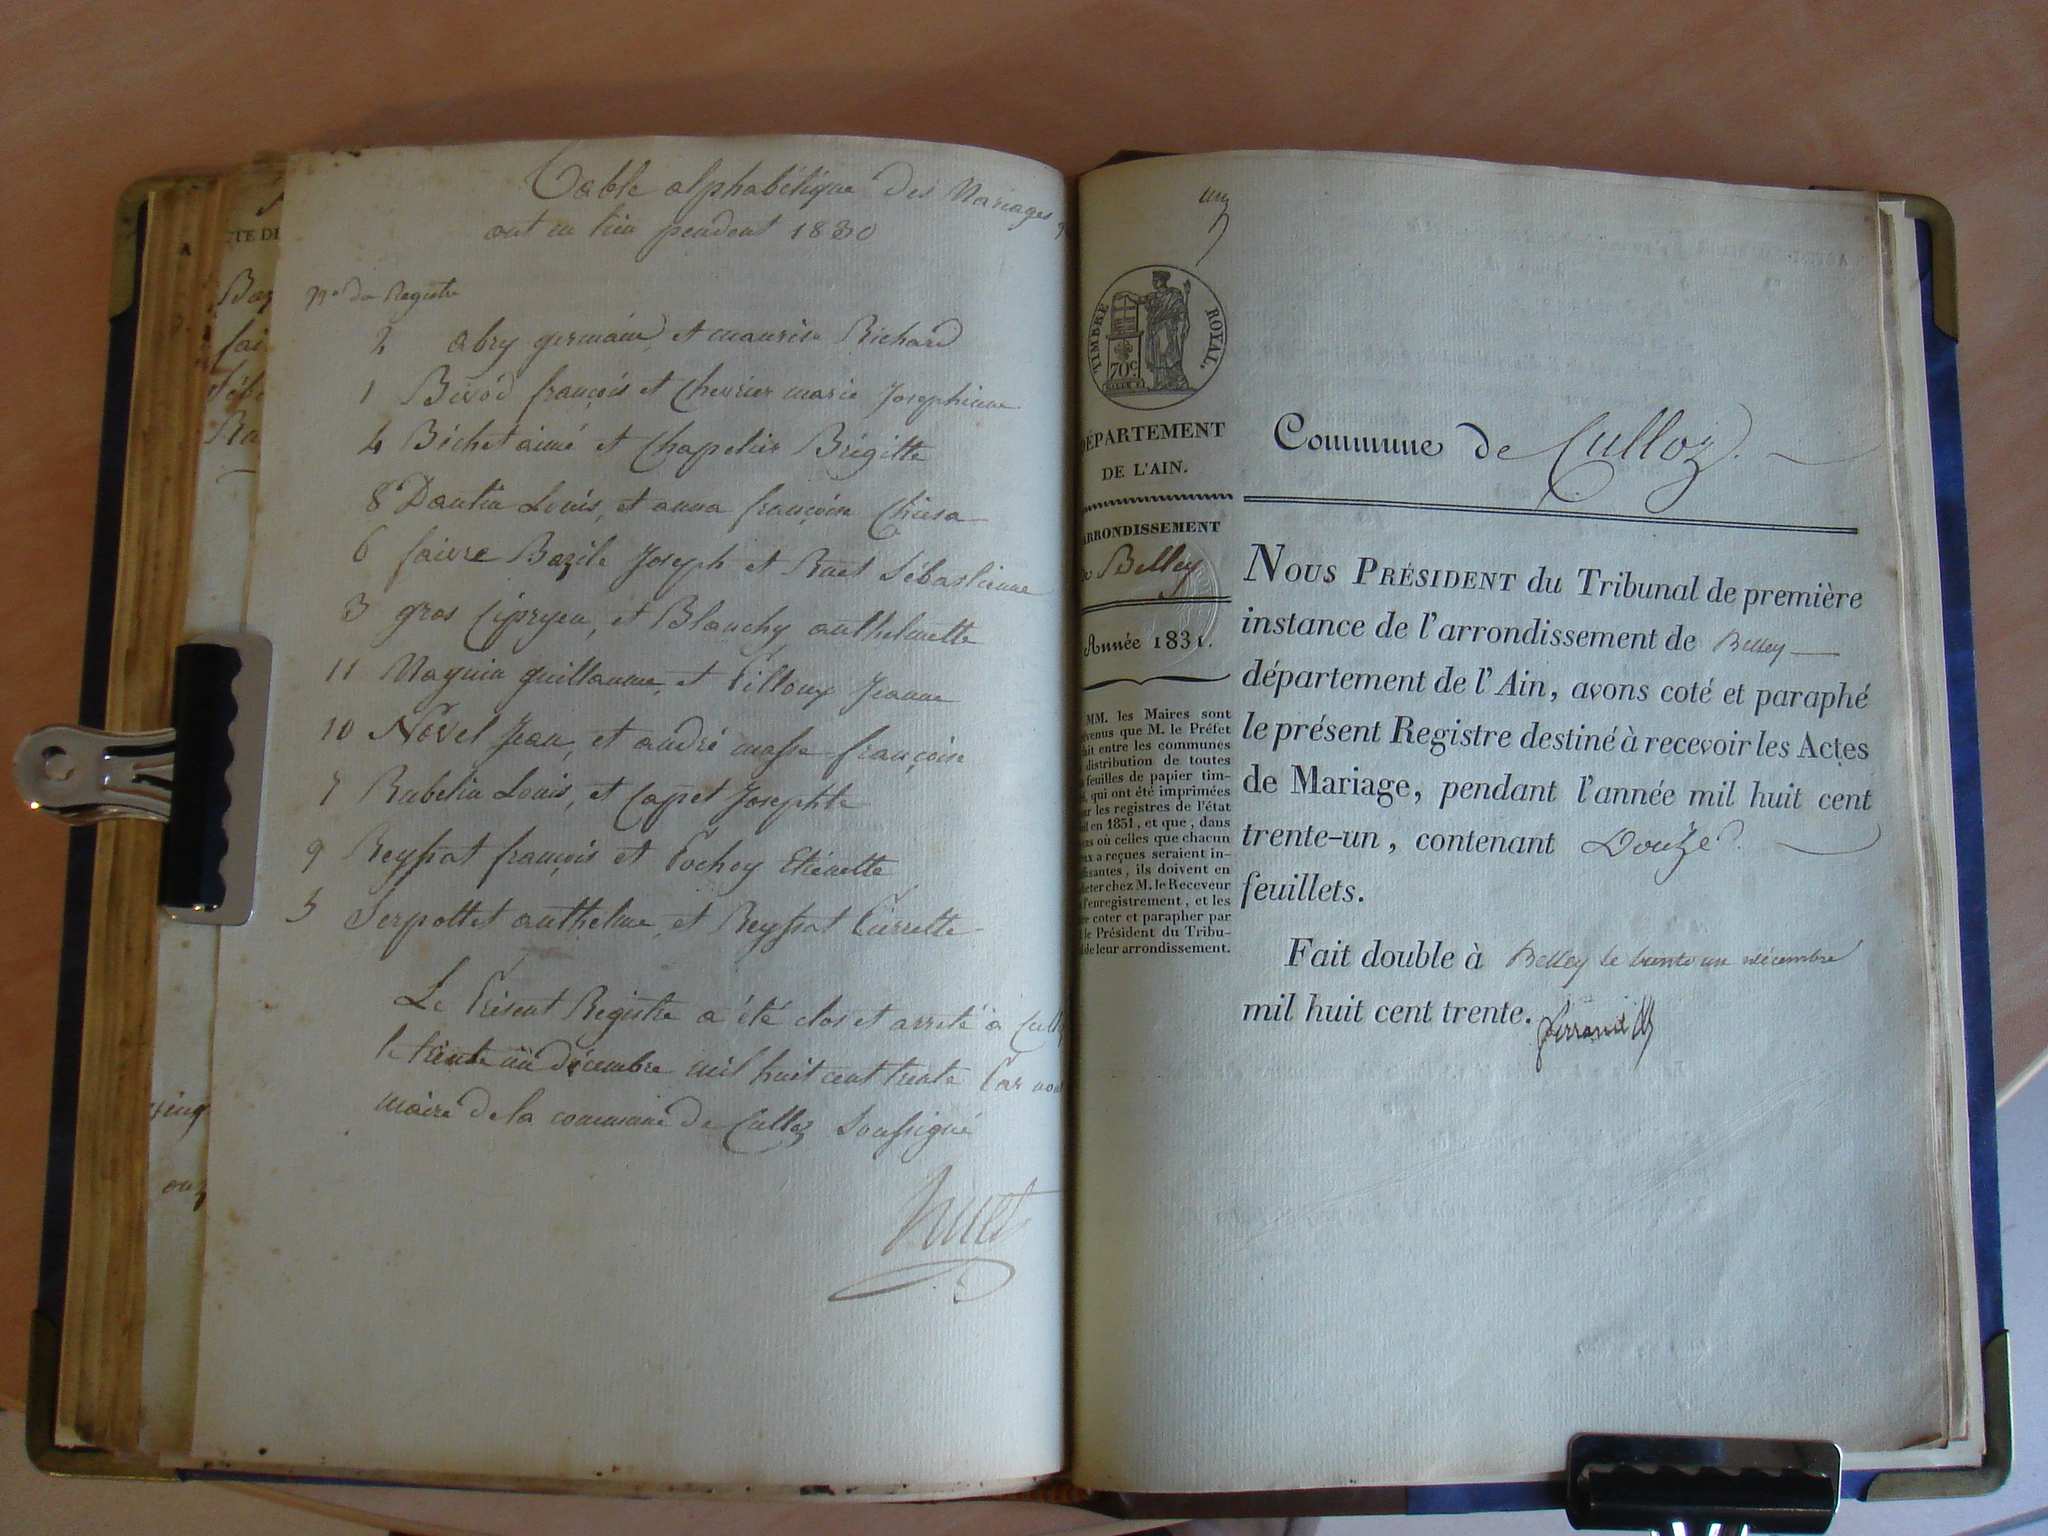 Table alphabétique des Mariages
ont eu lieu pendant 1830
N.º du Registre
2 abry germain, et maurise Richard
1 Bivod françois et Chevrier marie Josephine
4 Béchet aimé et Chapelier Brigitte
8 Dantin Louis, et anna françoise Chiesa
6 faivre Bazile Joseph et Ruet Sébastienne
3 gros Cipryen, et Blanchy anthelmette
11 Magnin guillaume, et Pilloux Jeanne
10 Novel Jean, et andré masse françoise
7 Rubelin Louis, et Capet Josephte
9 Reyssat françois et Pochey Etiénette
5 Serpollet anthelme, et Reyssat Pierrette
Le Présent Registre a été clos et arreté à Cullo
le trente un décembre mil huit cent trente Par nous
maire de la commune de Culloz Soussigné
huet
un
TIMBRE ROYAL.
70c
DÉPARTEMENT
DE L'AIN.
ARRONDISSEMENT
de Belley
Année 1831.
MM. les Maires sont
évenus que M. le Préfet
fait entre les communes
distribution de toutes
feuilles de papier tim-
, qui ont été imprimées
ur les registres de l'état
il en 1831, et que, dans
as où celles que chacun
ux a reçues seraient in-
ffisantes, ils doivent en
eter chez M. le Receveur
l'enregistrement, et les
re coter et parapher par
le Président du Tribu-
l de leur arrondissement.
Commune de Culloz.
NOUS PRÉSIDENT du Tribunal de première
instance de l'arrondissement de Belley
département de l'Ain, avons coté et paraphé
le présent Registre destiné à recevoir les Actes
de Mariage, pendant l'année mil huit cent
trente-un, contenant Douze
feuillets.
Fait double à Belley le trente un décembre
mil huit cent trente.